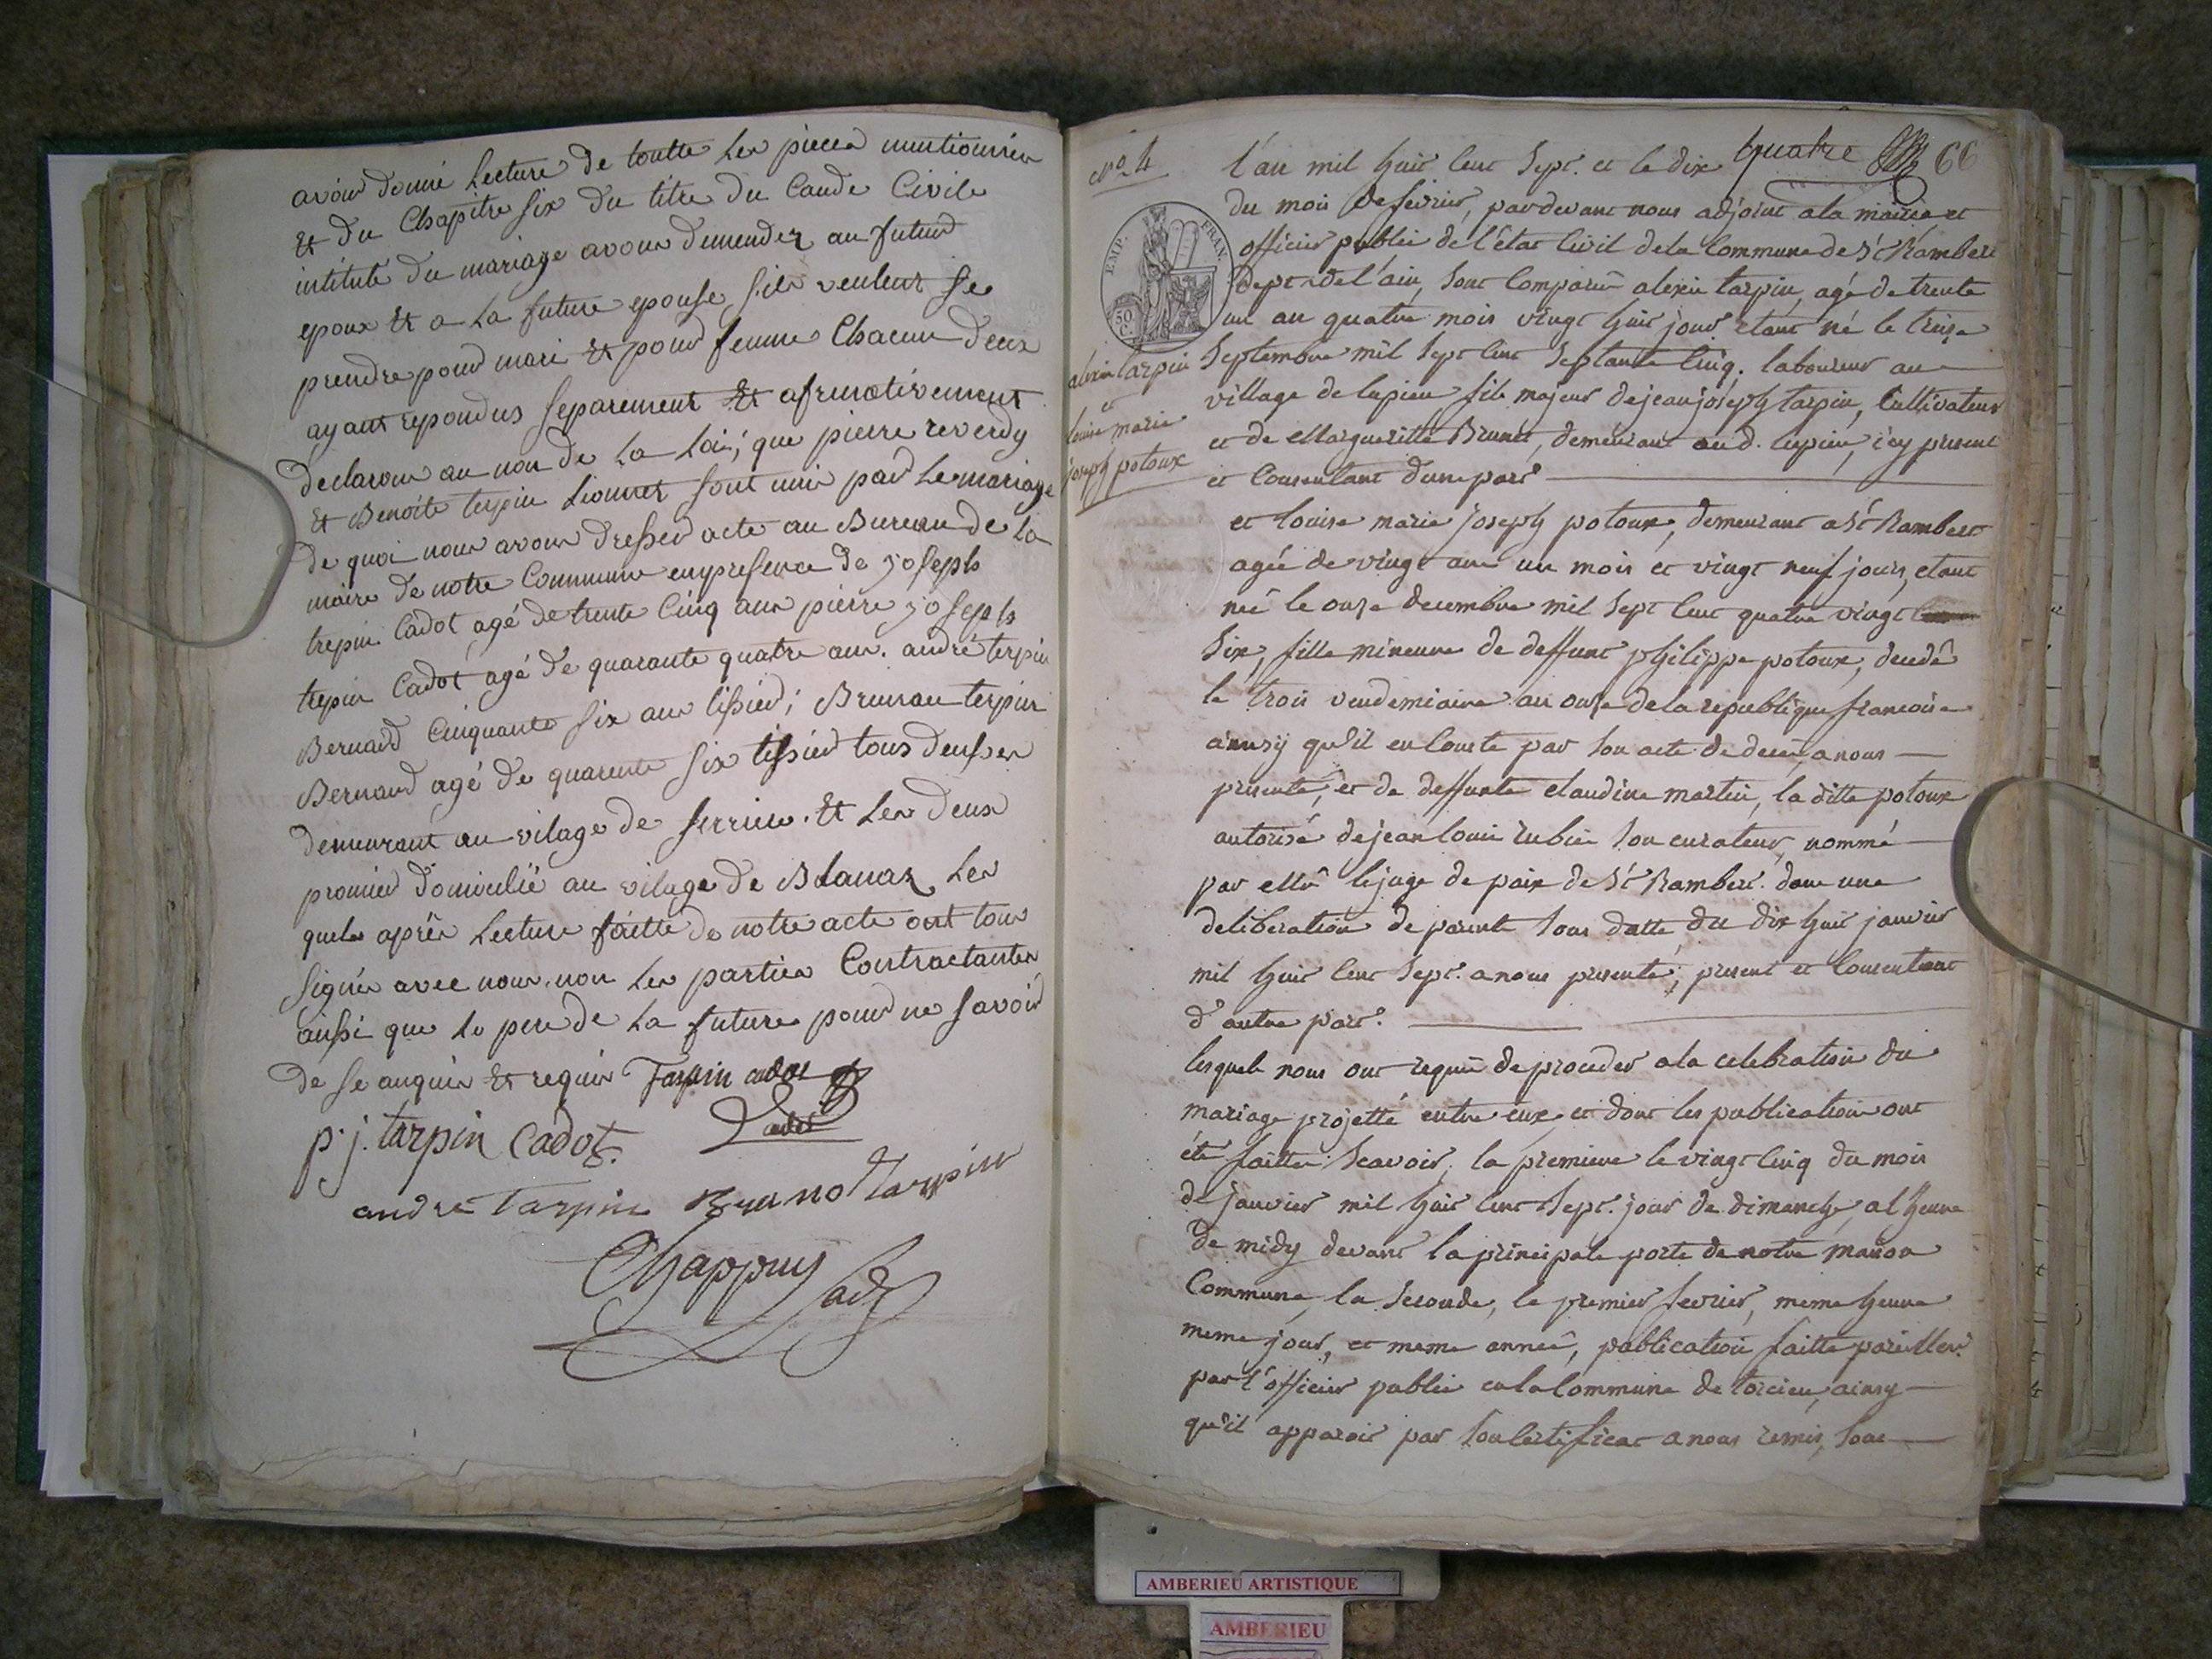 avoir donné Lecture de toutte Les pieces mentionnées
Et du Chapitre Six du titre du Caude Civile
intitulé du mariage avons demendez au futur
epoux Et a La future epouse s'ils veulent se
prendre pour mari Et pour femme Chacun deux
ayant repondus Separement Et afirmativement
declarons au non de La Loi, que pierre reverdy
Et Benoite terpin Lionnet sont unis par Le mariage
de quoi nous avons dressée acte au Bureau de la
mairie de notre Commune en presence de joseph
trepin Cadot agé de trente Cinq ans pierre joseph
trepin Cadot agé de quarante quatre ans. andré terpin
Bernard Cinquante six ans tissier; Brunau terpin
Bernard agé de quarente six tissier tous deux
demeurant au vilage de Serrieu. Et Les deux
promier domicilié au vilage de Blanaz Les
quels après Lecture faitte de notre acte ont tous
Signés avec nous, non Les parties Contractantes
aussi que Le pere de La future pour ne savoir
de se anquis Et requis Tarpin cadot
Cadet
p. j. tarpin Cadot.
andré Tarpin Bruno Tarpin
Chappuy
adj
quatre 66
No. 4
EMP. FRAN.
50 C.
alexis tarpin
et
louise marie
joseph potoux
l'an mil huit cent sept. et le dix
du mois de fevrier, pardevant nous adjoint a la mairie et
officier public de l'état Civil de la Commune de St Rambert
dept. de l'ain, sont Comparus alexis tarpin, agé de trente
un an quatre mois vingt huit jour etant né le treize
Septembre mil sept cent septante cinq. laboureur au
village de lupieu fils majeur de jean joseph tarpin, Cultivateur
et de Margueritte Brunet, demeurant au d. lupieu, icy present
et Consentant d'une part
et louise marie joseph potoux, demeurant a St Rambert
agée de vingt ans un mois et vingt neuf jours, etant
neé le onze decembre mil sept cent quatre vingt
Six, fille mineure de deffunt philippe potoux, decedé
le trois vendemiaire an onze de la republique francoise
ainsy qu'il en Conste par son acte de decès, a nous
presenté, et de deffunte claudine martin, la ditte potoux
autorisé de jean louis rubin son curateur, nommé
par le juge de paix de St Rambert. dans une
deliberation de parents sous datte du dix huit janvier
mil huit cent sept. a nous presenté; present et Consentant
d'autre part.
lesquels nous ont requis de proceder a la celebration du
mariage projetté entre eux et dont les publications ont
été faittes. Scavoir; la premiere le vingt cinq du mois
de janvier mil huit cent sept. jour de dimanche, a l'heure
de midy devant la principale porte de notre maison
Commune, la seconde, le premier fevrier, meme heure
meme jour, et meme anneé, publication faitte pareillem.
par l'officier public en la Commune de torcieu, ainsy
qu'il apparoit par son Certificat a nous remis, sous
AMBERIEU ARTISTIQUE
AMBERIEU